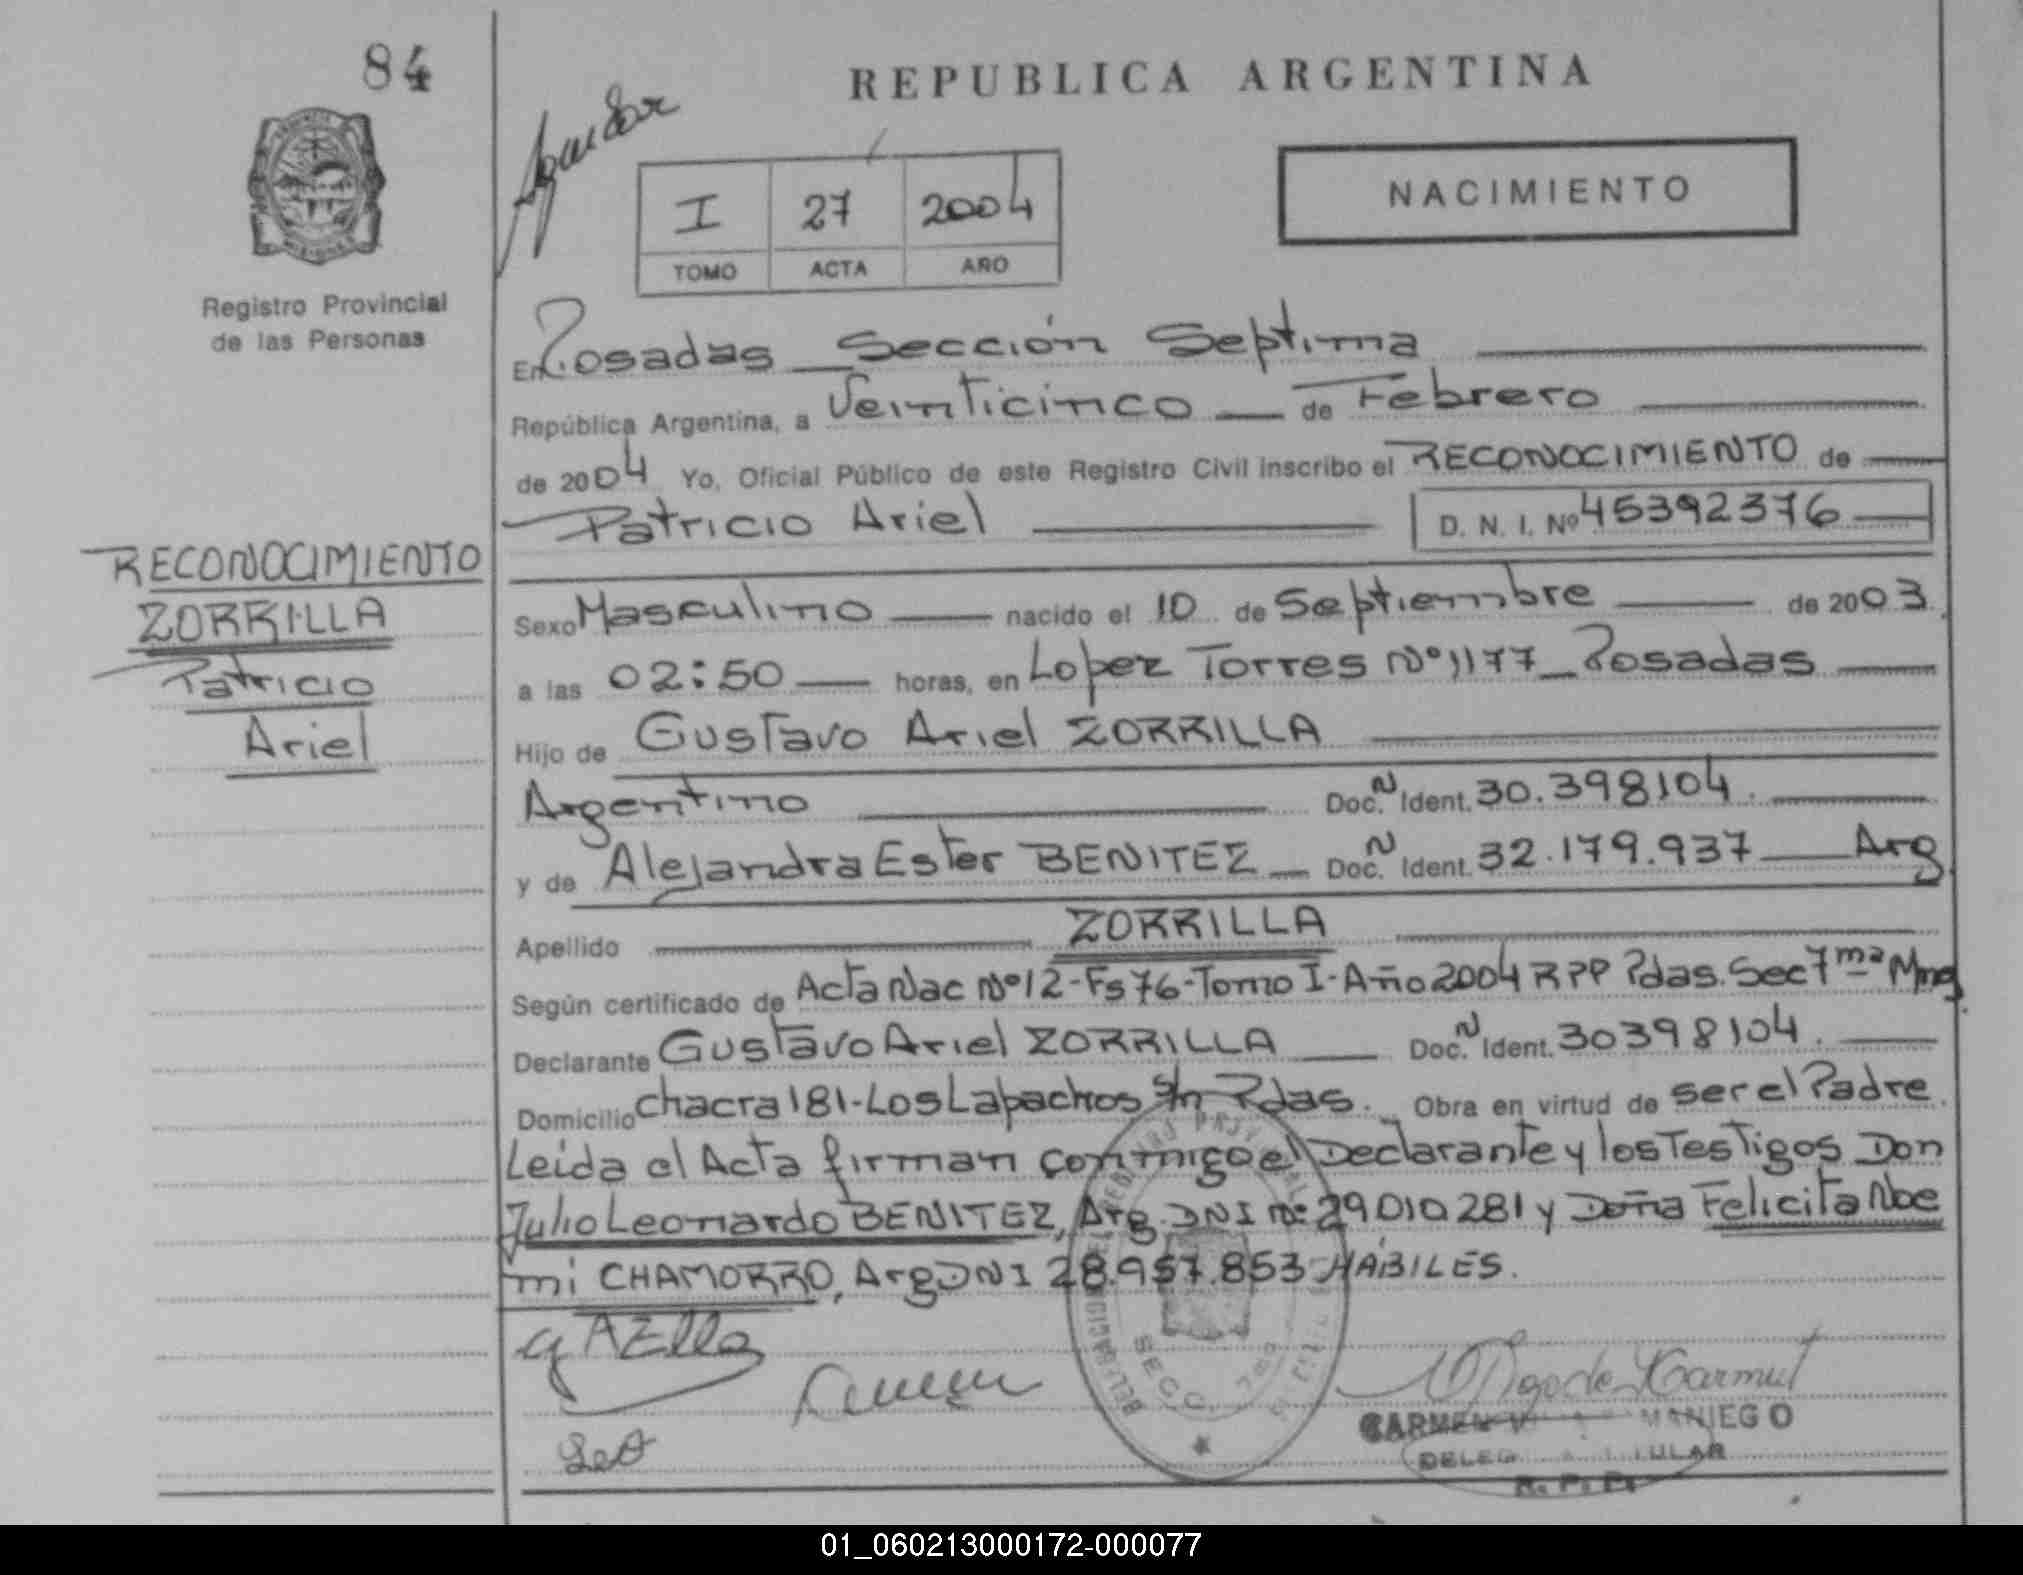 84
REPUBLICA ARGENTINA
NACIMIENTO
I 27 2004
TOMO ACTA AÑO
Registro Provincial
de las Personas
En Posadas Sección Septima
República Argentina, a Veinticinco de Febrero
de 2004 Yo, Oficial Público de este Registro Civil inscribo el RECONOCIMIENTO de
Patricio Ariel D. N. I. Nº 45392376
RECONOCIMIENTO
ZORRILLA
Patricio
Ariel
Sexo Masculino nacido el 10 de Septiembre de 2003
a las 02:50 horas, en Lopez Torres Nº 1177_Posadas
Hijo de Gustavo Ariel ZORRILLA
Argentino Doc. N Ident. 30.398104.
y de Alejandra Ester BENITEZ Doc. N Ident. 32.179.937 Arg
Apellido ZORRILLA
Según certificado de Acta Nac Nº 12-Fs 76-Tomo I-Año 2004 RPP Pdas. Sec 7ma Mnes
Declarante Gustavo Ariel ZORRILLA Doc. N Ident. 30398104.
Domicilio Chacra 181-Los Lapachos S/n Pdas. Obra en virtud de ser el Padre
Leida el Acta firman conmigo el Declarante y los Testigos Don
Julio Leonardo BENITEZ, Arg. DNI nº 29010281 y Doña Felicita Noe
mi CHAMORRO, Arg DNI 28.957.853 HÁBILES.
CARMEN MANIEGO
DELEG TULAR
R. P. P.
01_060213000172-000077